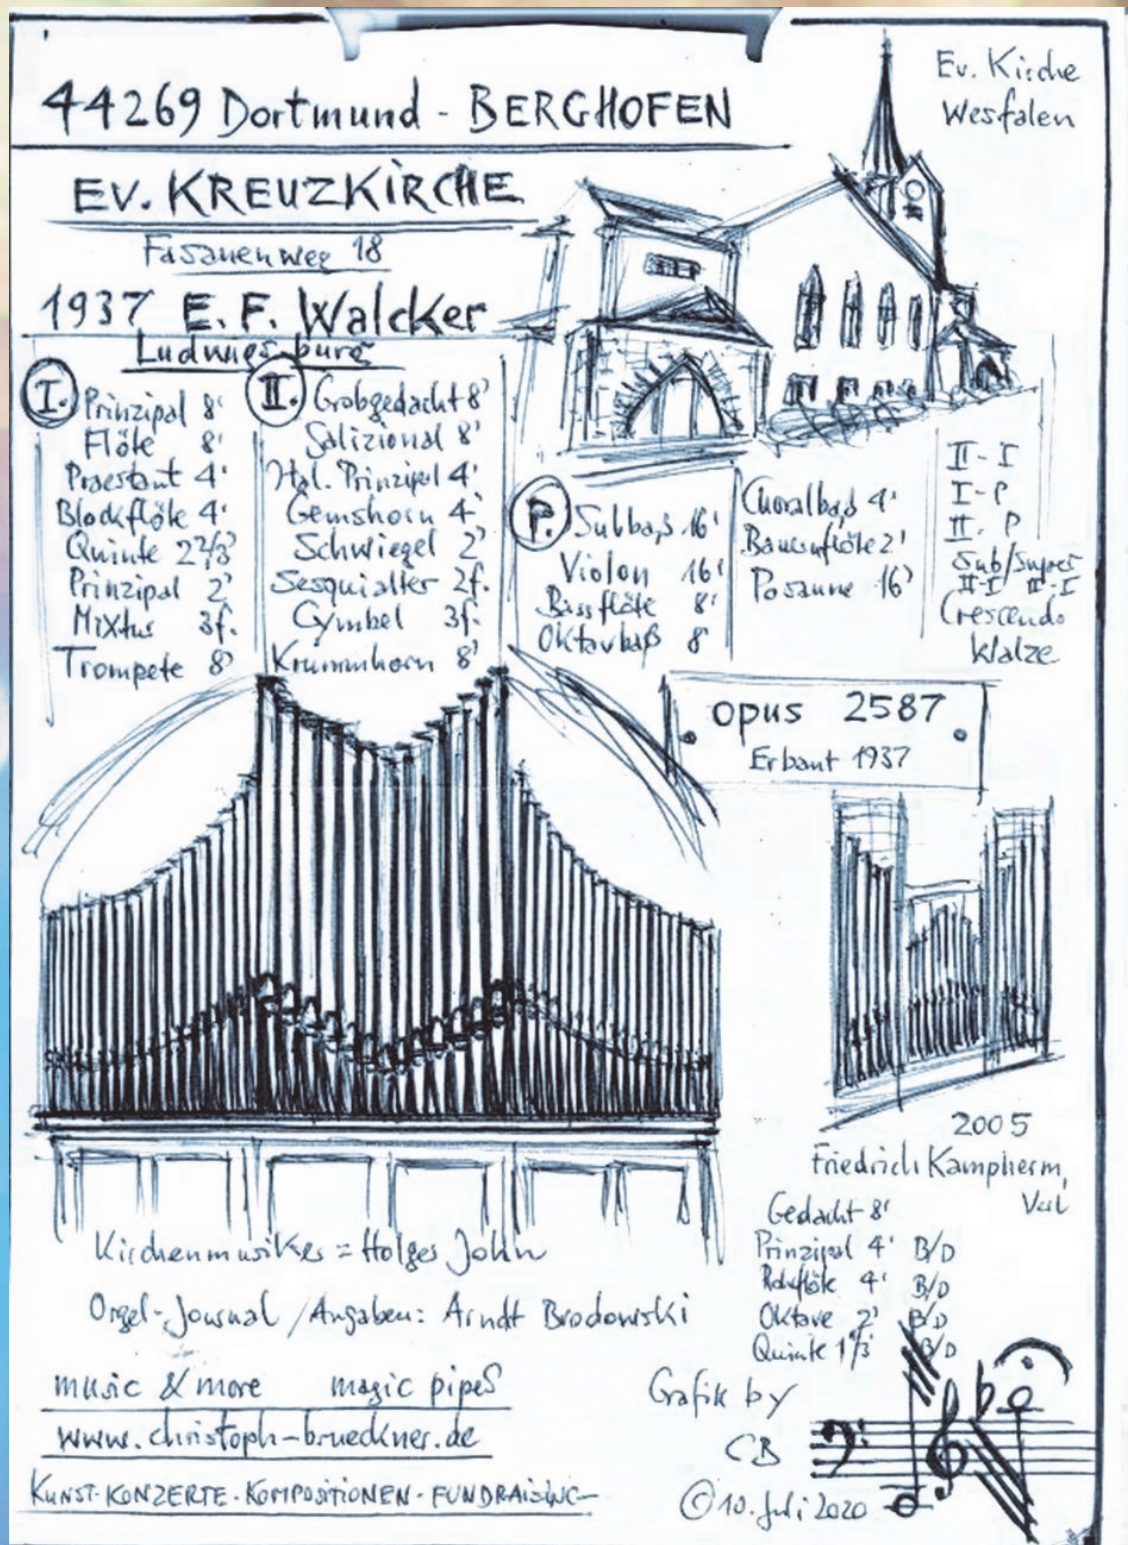 44269 Dortmund - BERGHOFEN
Ev. Kirche
Westfalen
EV. KREUZKIRCHE
Fasanenweg 18
1937 E. F. Walcker
Ludwigsburg
I.
Prinzipal 8'
Flöte 8'
Praestant 4'
Blockflöte 4'
Quinte 2 2/3'
Prinzipal 2'
Mixtur 3f.
Trompete 8'
II.
Grobgedackt 8'
Salizional 8'
Hol. Prinzipal 4'
Gemshorn 4'
Schwiegel 2'
Sesquialter 2f.
Cymbel 3f.
Krummhorn 8'
P.
Subbaß 16'
Violon 16'
Bassflöte 8'
Oktavbaß 8'
Choralbaß 4'
Bauernflöte 2'
Posaune 16'
II - I
I - P
II. P
Sub/Super
II-I II-I
Crescendo
Walze
opus 2587
Erbaut 1937
2005
Friedrich Kampherm,
Verl
Gedackt 8'
Prinzipal 4' B/D
Rohrflöte 4' B/D
Oktave 2' B/D
Quinte 1 1/3' B/D
Kirchenmusiker = Holger John
Orgel-Journal / Angaben: Arndt Brodowski
music & more magic pipes
www.christoph-brueckner.de
KUNST-KONZERTE-KOMPOSITIONEN-FUNDRAISING
Grafik by
CB
© 10. Juli 2020